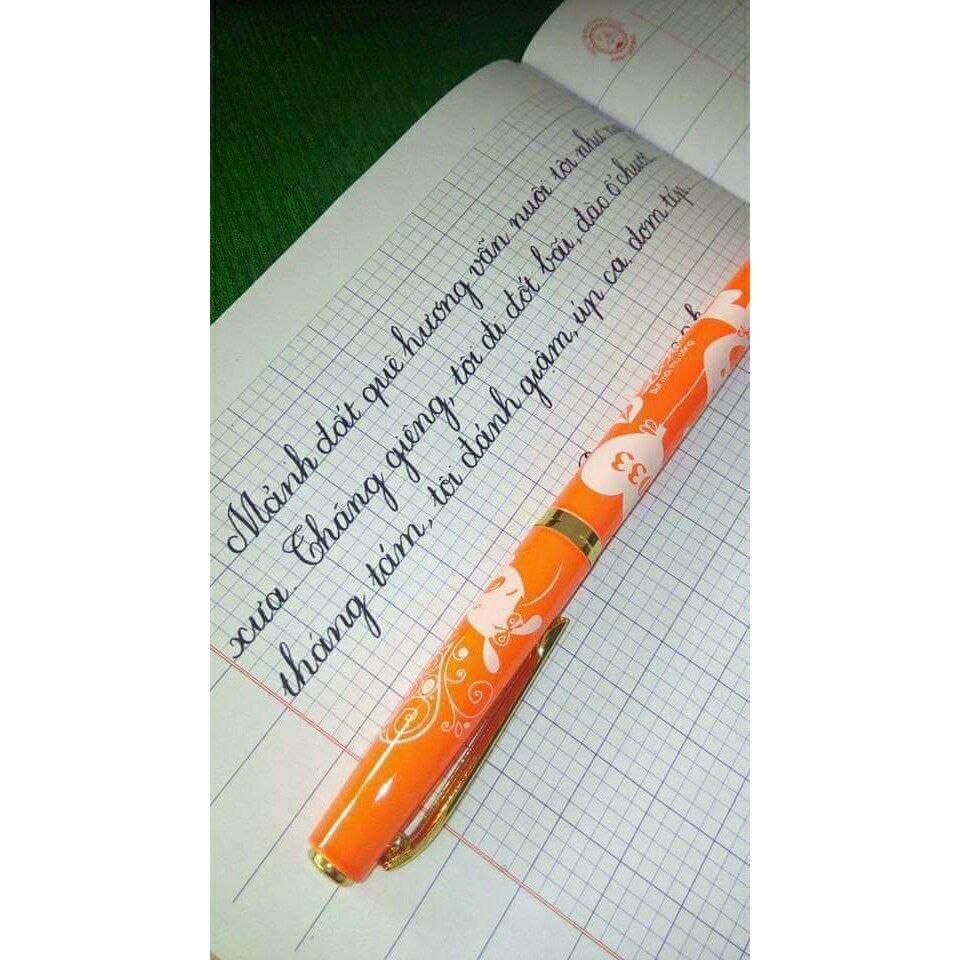 Mảnh đất quê hương vẫn nuôi tôi như
xưa. Tháng giêng, tôi đi đốt bãi, đào ổ chuột
tháng tám, tôi đánh giậm, úp cá, đơm tép